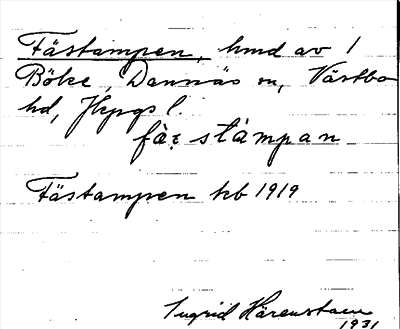 Fästampen, hmd av 1
Böke, Dannäs sn, Västbo
hd, Jkpgs l.
fä̀ꝛ stámpan
Fästampen kb 1919
Ingrid Härenstam
1931